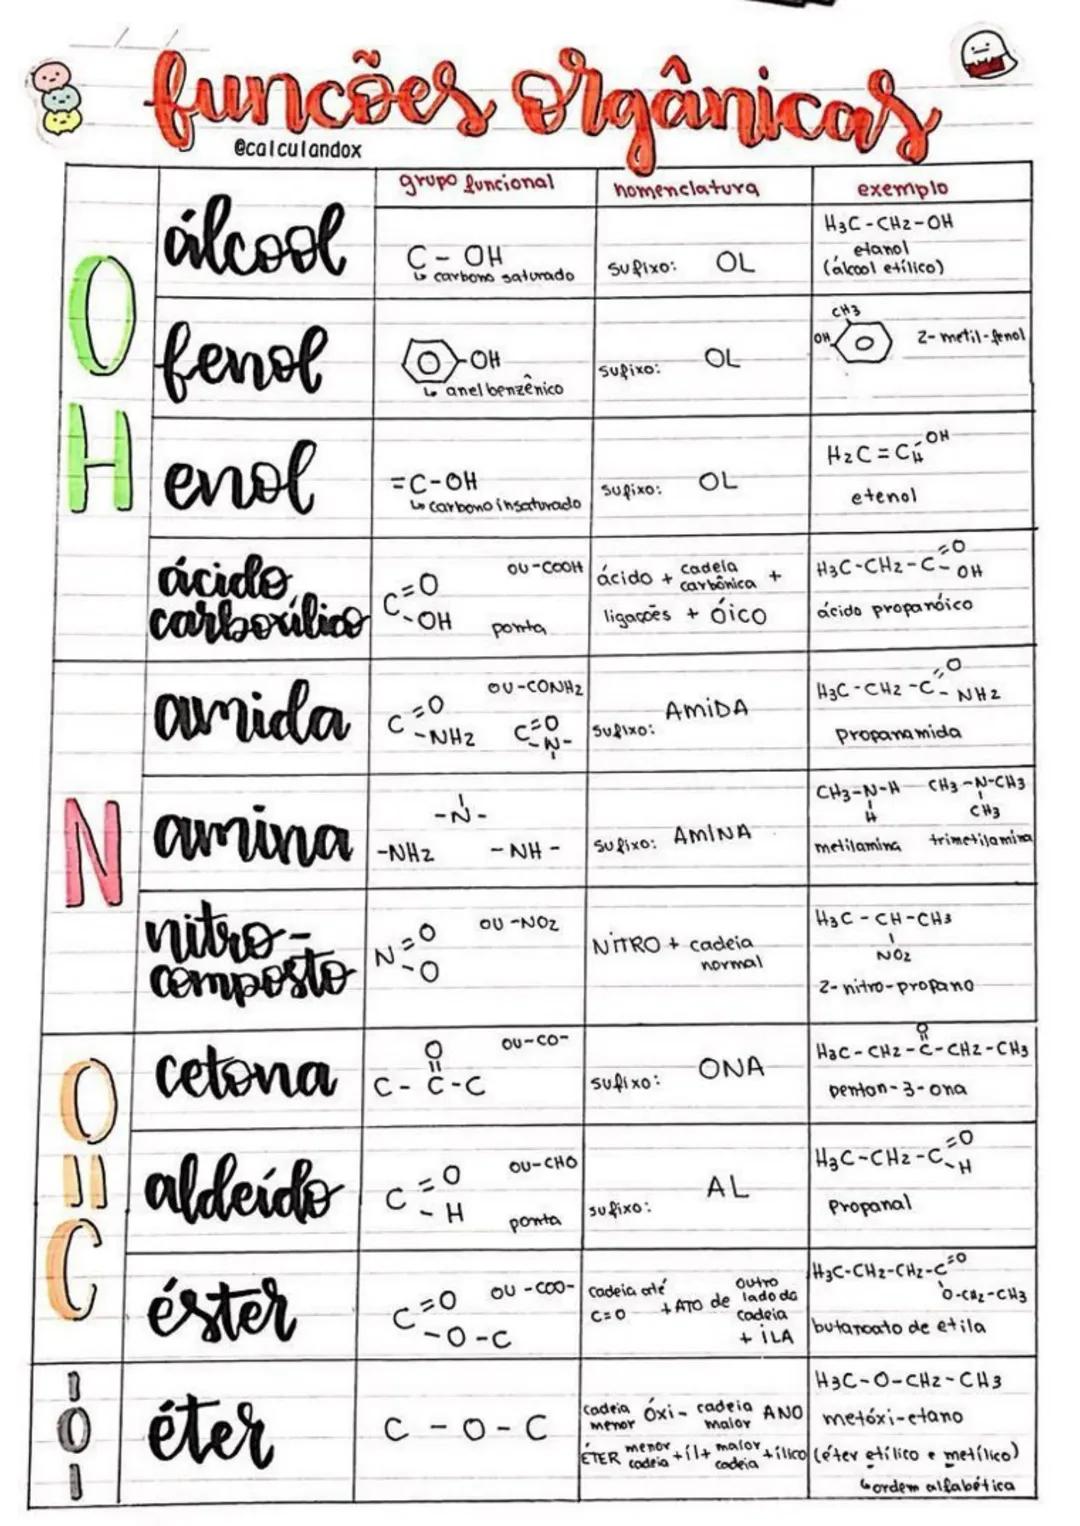 funcões orgânicas
@calculandox
grupo funcional nomenclatura exemplo
OH
álcool
C - OH
↳ carbono saturado
sufixo: OL
H3C-CH2-OH
etanol
(álcool etílico)
fenol
-OH
↳ anel benzênico
sufixo: OL
CH3
OH
2-metil-fenol
enol
=C-OH
↳ carbono insaturado
sufixo: OL
H2C=CH-OH
etenol
ácido carboxílico
C=O
-OH
ou-COOH
ponta
ácido + cadeia carbônica +
ligações + óico
H3C-CH2-C=O
-OH
ácido propanóico
N
amida
C=O
-NH2
ou-CONH2
C=O
-N-
sufixo: AMIDA
H3C-CH2-C=O
-NH2
propanamida
amina
-N-
-NH2 -NH-
sufixo: AMINA
CH3-N-H
H
metilamina
CH3-N-CH3
CH3
trimetilamina
nitro-
composto
N=O
-O
ou-NO2
NITRO + cadeia
normal
H3C-CH-CH3
NO2
2-nitro-propano
O
=
C
cetona
O
C-C-C
ou-CO-
sufixo: ONA
O
H3C-CH2-C-CH2-CH3
penton-3-ona
aldeído
C=O
-H
ou-CHO
ponta
sufixo: AL
H3C-CH2-C=O
-H
propanal
éster
C=O
-O-C
ou-COO-
cadeia até
C=O
+ATO de
outro
lado da
cadeia
+ ILA
H3C-CH2-CH2-C=O
O-CH2-CH3
butanoato de etila
-O-
éter
C - O - C
cadeia menor óxi- cadeia maior ANO
ÉTER menor cadeia +il+ maior cadeia +ílico
H3C-O-CH2-CH3
metóxi-etano
(éter etílico e metílico)
↳ ordem alfabética